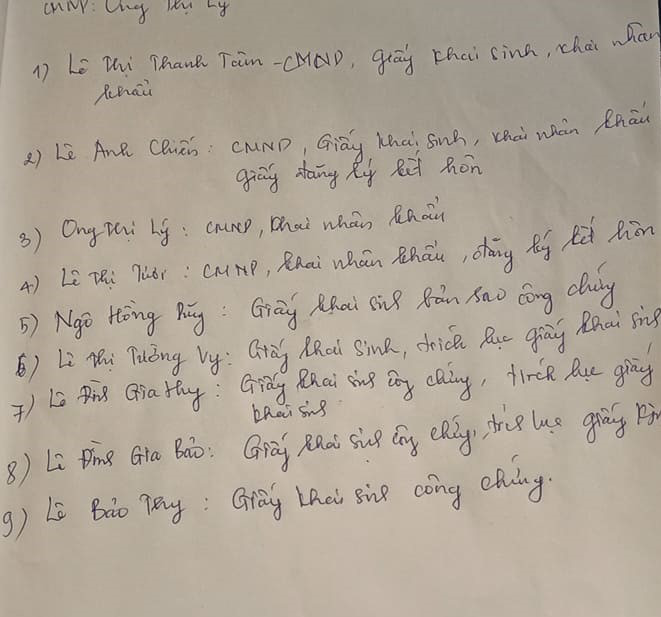 CMNP: Ưng Thị Lý
1) Lê Thị Thanh Tâm - CMND, giấy khai sinh, khai nhân
khẩu
2) Lê Anh Chiến: CMND, Giấy khai sinh, khai nhân khẩu
giấy đăng ký kết hôn
3) Ong Thị Lý: CMND, khai nhân khẩu
4) Lê Thị : CMND, khai nhân khẩu, đăng ký kết hôn
5) Ngô Hồng : Giấy khai sinh bản sao công chứng
6) Lê Thị Tường Vy: Giấy khai sinh, trích lục giấy khai sinh
7) Lê Đình Gia Thy: Giấy khai sinh công chứng, trích lục giấy
khai sinh
8) Lê Đình Gia Bảo: Giấy khai sinh công chứng, trích lục giấy
9) Lê Bảo Thy: Giấy khai sinh công chứng.